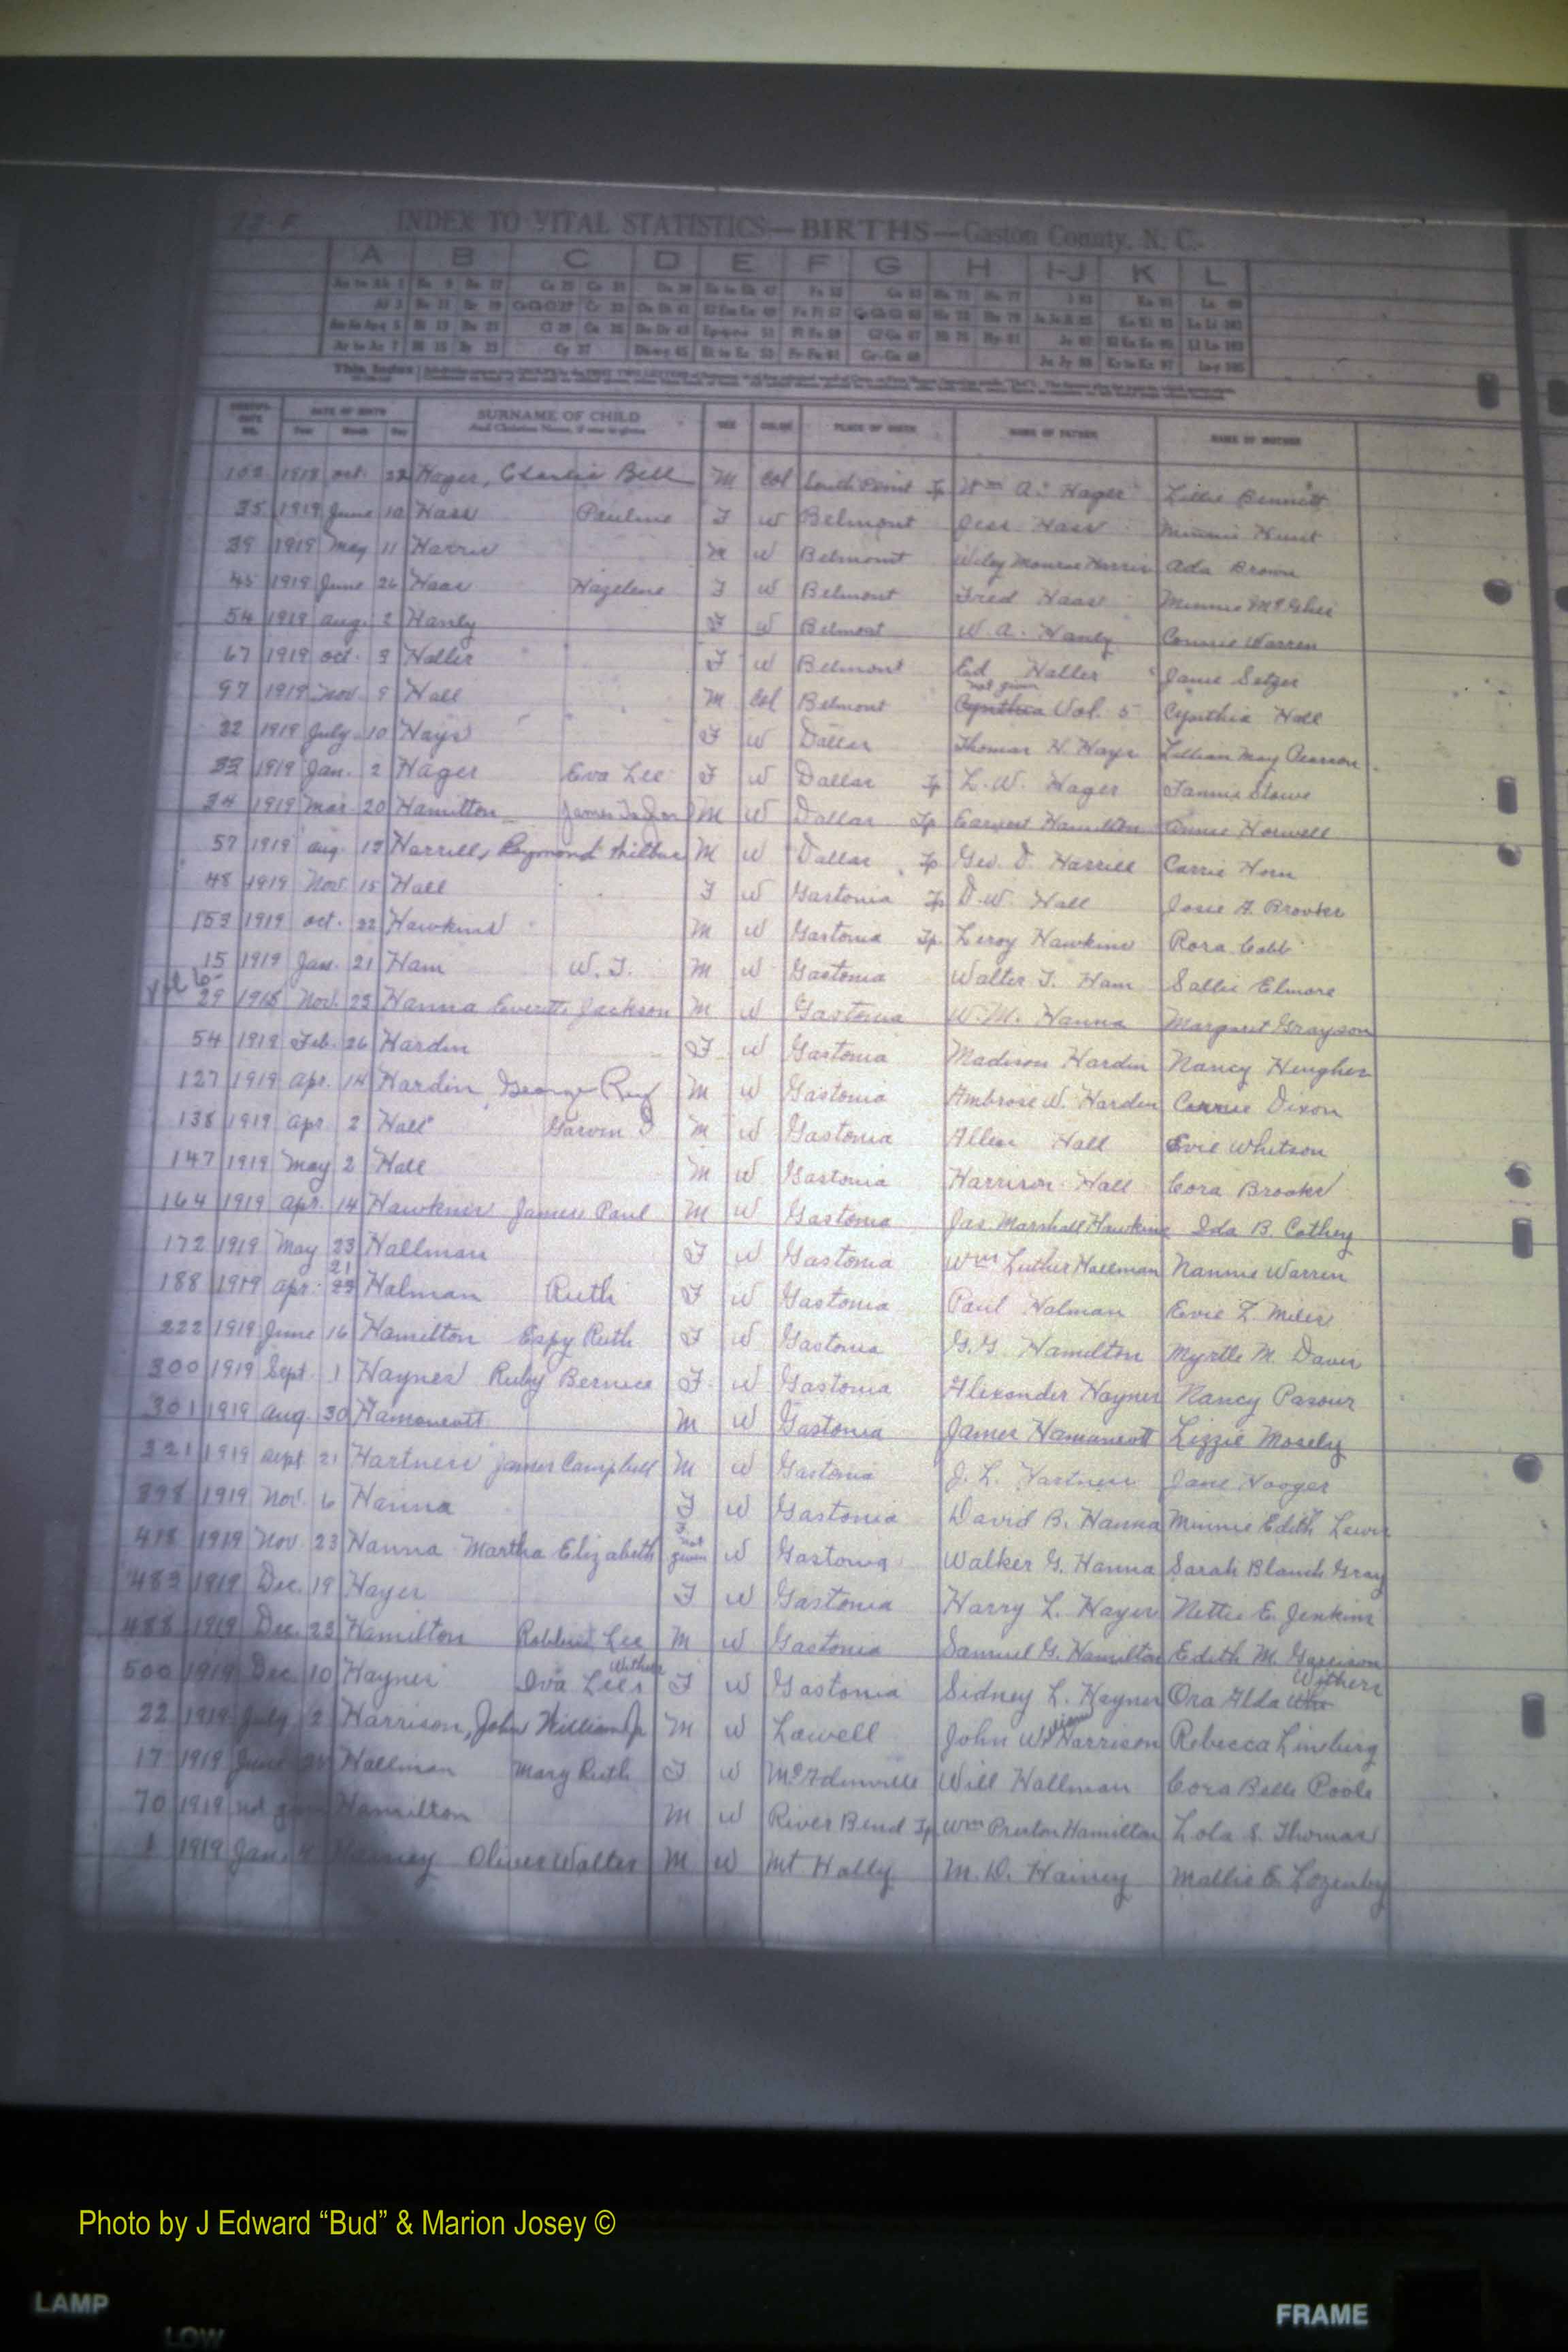 INDEX TO VITAL STATISTICS—BIRTHS—Gaston County, N. C.
A B C D E F G H I-J K L
This Index
DATE OF BIRTH SURNAME OF CHILD SEX COLOR PLACE OF BIRTH NAME OF FATHER NAME OF MOTHER
Year Month Day And Christian Name, if one is given
102 1918 Oct. 22 Hager, Charlie Bell M Col South Point Tp Wm A. Hager Lillie Bennett
35 1919 June 10 Hass Pauline F W Belmont Jess Hass Minnie Hunt
39 1919 May 11 Harris M W Belmont Wiley Monroe Harris Ada Brown
45 1919 June 26 Haas Hazelene F W Belmont Fred Haas Minnie
54 1919 Aug. 2 Hanly F W Belmont W. A. Hanly Connie Warren
67 1919 Oct. 9 Haller F W Belmont Ed Haller Janie Setzer
97 1919 Nov. 9 Hall M Col Belmont not given Cynthia Vol. 5 Cynthia Hall
22 1919 July 10 Hays F W Dallas Thomas H. Hays Lillian May Pearson
33 1919 Jan. 2 Hager Eva Lee F W Dallas Tp L. W. Hager Fannie Stowe
34 1919 Mar 20 Hamilton James M W Dallas Tp Earnest Hamilton Annie Horwell
57 1919 Aug. 19 Harrill, Raymond Wilbur M W Dallas Tp Geo. D. Harrill Carrie Horn
48 1919 Nov. 15 Hall F W Gastonia Tp D. W. Hall Josie A. Brooker
153 1919 Oct. 22 Hawkins M W Gastonia Tp. Leroy Hawkins Rora Cobb
15 1919 Jan. 21 Ham W. T. M W Gastonia Walter T. Ham Sallie Elmore
Vol 6 29 1918 Nov. 25 Hanna Everette Jackson M W Gastonia W. M. Hanna Margaret Grayson
54 1919 Feb. 26 Hardin F W Gastonia Madison Hardin Nancy Hengher
127 1919 Apr. 14 Hardin, George Ruf M W Gastonia Ambrose W. Hardin Carrie Dixon
138 1919 Apr 2 Hall Garvin M W Gastonia Allen Hall Evie Whitson
147 1919 May 2 Hall M W Gastonia Harrison Hall Cora Brooks
164 1919 Apr. 14 Hawkins James Paul M W Gastonia Jas. Marshall Hawkins Ida B. Cathey
172 1919 May 23 Hallman F W Gastonia Wm Luther Hallman Nannie Warren
188 1919 Apr. 21 23 Halman Ruth F W Gastonia Paul Halman Evie L. Miles
222 1919 June 16 Hamilton Espy Ruth F W Gastonia G. G. Hamilton Myrtle M. Davis
300 1919 Sept. 1 Haynes Ruby Bernice F W Gastonia Alexander Haynes Nancy Pasour
301 1919 Aug. 30 Hamoncott M W Gastonia James Hamancott Lizzie Mosely
321 1919 Sept 21 Hartness James Campbell M W Gastonia J. L. Hartness Jane Hooger
398 1919 Nov. 6 Hanna F W Gastonia David B. Hanna Minnie Edith Lewis
418 1919 Nov 23 Hanna Martha Elizabeth F not given W Gastonia Walker G. Hanna Sarah Blanch Gray
483 1919 Dec. 19 Hayes F W Gastonia Harry L. Hayes Nettie E. Jenkins
488 1919 Dec. 23 Hamilton Robbert Lee M W Gastonia Samuel G. Hamilton Edith M. Garrison
500 1919 Dec. 10 Haynes Iva Lee Withers F W Gastonia Sidney L. Haynes Ora Alda Withers
22 1919 July 2 Harrison, John William Jr M W Lowell John William Harrison Rebecca Lineburg
17 1919 June Hallman Mary Ruth F W McAdenville Will Hallman Cora Belle Poole
70 1919 not given Hamilton M W River Bend Tp Wm Preston Hamilton Lola S. Thomas
1 1919 Jan. 4 Hainey Oliver Walter M W Mt Holly M. D. Hainey Mallie E. Lozenby
Photo by J Edward “Bud” & Marion Josey ©
LAMP
LOW
FRAME